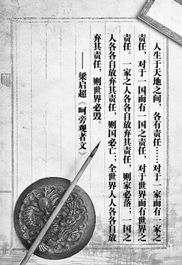 人生于天地之间，各有责任……对于一家而有一家之
责任，对于一国而有一国之责任，对于世界而有世界之
责任。一家之人各各自放弃其责任，则家必落；一国之
人各各自放弃其责任，则国必亡；全世界人人各各自放
弃其责任，则世界必毁。
——梁启超《呵旁观者文》